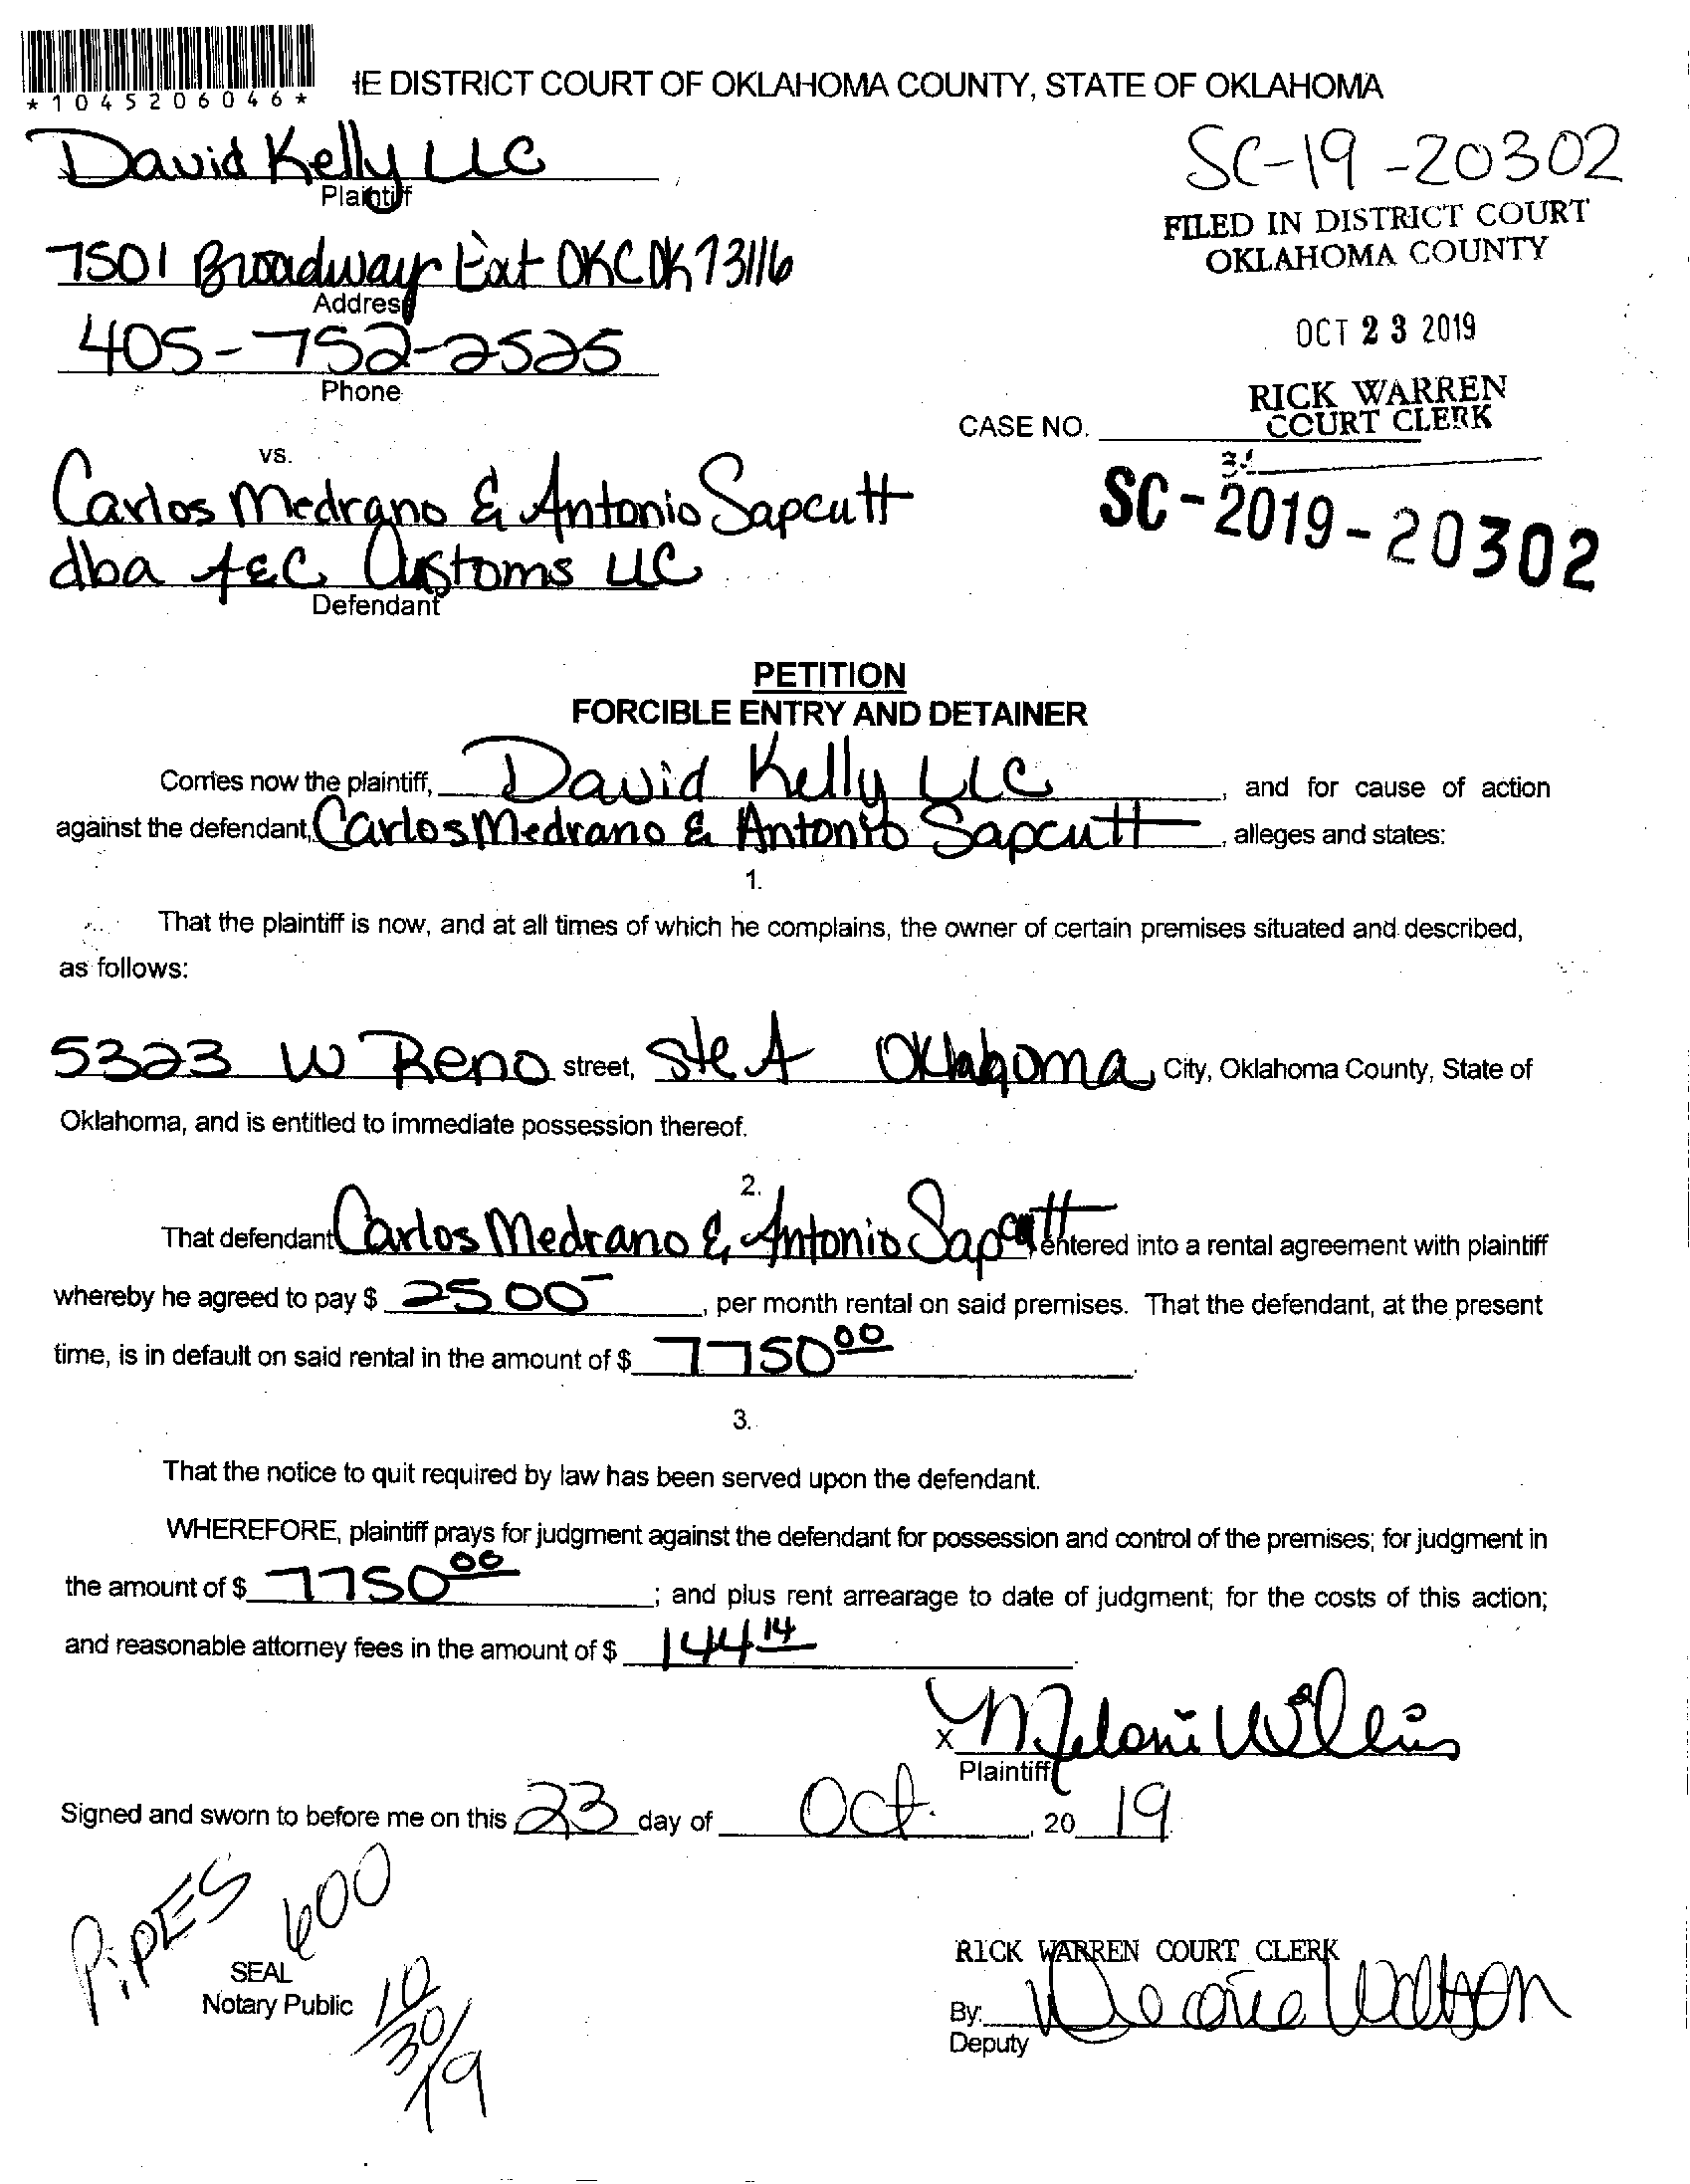 *1045206046*
HE DISTRICT COURT OF OKLAHOMA COUNTY, STATE OF OKLAHOMA
David Kelly LLC
Plaintiff
SC-19-20302
FILED IN DISTRICT COURT
OKLAHOMA COUNTY
7501 Broadway Ext OKC OK 73116
Address
OCT 23 2019
405-752-2525
Phone
RICK WARREN
COURT CLERK
CASE NO.
vs.
Carlos Medrano & Antonio Sapcutt
SC-2019-20302
dba A&C Customs LLC
Defendant
PETITION
FORCIBLE ENTRY AND DETAINER
Comes now the plaintiff, David Kelly LLC, and for cause of action
against the defendant, Carlos Medrano & Antonio Sapcutt, alleges and states:
1.
That the plaintiff is now, and at all times of which he complains, the owner of certain premises situated and described,
as follows:
5323 W Reno street, Ste A Oklahoma, City, Oklahoma County, State of
Oklahoma, and is entitled to immediate possession thereof.
2.
That defendant Carlos Medrano & Antonio Sapcutt, entered into a rental agreement with plaintiff
whereby he agreed to pay $ 2500-, per month rental on said premises. That the defendant, at the present
time, is in default on said rental in the amount of $ 7750 00.
3.
That the notice to quit required by law has been served upon the defendant.
WHEREFORE, plaintiff prays for judgment against the defendant for possession and control of the premises; for judgment in
the amount of $ 7750 00; and plus rent arrearage to date of judgment; for the costs of this action;
and reasonable attorney fees in the amount of $ 144 14.
X Melani Willis
Plaintiff
Signed and sworn to before me on this 23 day of Oct., 20 19.
PiPES 600
SEAL
Notary Public
10/30/19
RICK WARREN COURT CLERK
By:
Deputy